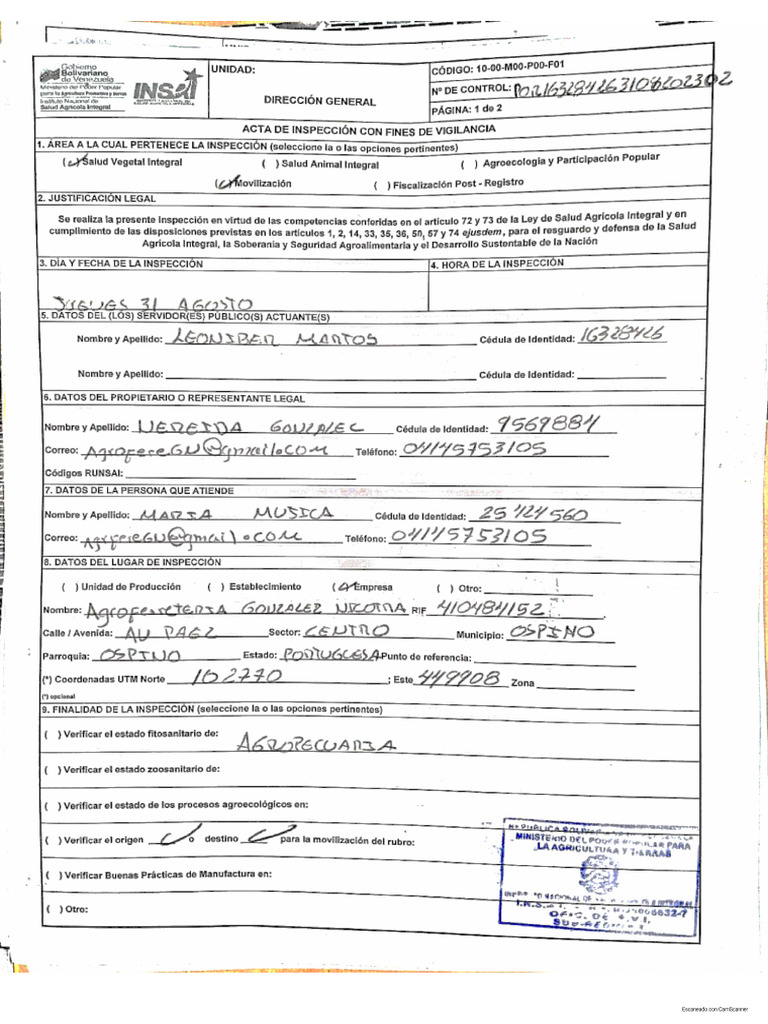 Gobierno
Bolivariano
de Venezuela
Ministerio del Poder Popular
para la Agricultura Productiva y Tierras
Instituto Nacional de
Salud Agrícola Integral
INSAI
UNIDAD:
DIRECCIÓN GENERAL
CÓDIGO: 10-00-M00-P00-F01
Nº DE CONTROL: POR163284263108202302
PÁGINA: 1 de 2
ACTA DE INSPECCIÓN CON FINES DE VIGILANCIA
1. ÁREA A LA CUAL PERTENECE LA INSPECCIÓN (seleccione la o las opciones pertinentes)
(✓) Salud Vegetal Integral ( ) Salud Animal Integral ( ) Agroecología y Participación Popular
(✓) Movilización ( ) Fiscalización Post - Registro
2. JUSTIFICACIÓN LEGAL
Se realiza la presente inspección en virtud de las competencias conferidas en el artículo 72 y 73 de la Ley de Salud Agrícola Integral y en
cumplimiento de las disposiciones previstas en los artículos 1, 2, 14, 33, 35, 36, 50, 57 y 74 ejusdem, para el resguardo y defensa de la Salud
Agrícola Integral, la Soberanía y Seguridad Agroalimentaria y el Desarrollo Sustentable de la Nación
3. DÍA Y FECHA DE LA INSPECCIÓN
4. HORA DE LA INSPECCIÓN
JUEVES 31 AGOSTO
5. DATOS DEL (LOS) SERVIDOR(ES) PÚBLICO(S) ACTUANTE(S)
Nombre y Apellido: LEONIBER MARTOS Cédula de Identidad: 16328426
Nombre y Apellido: Cédula de Identidad:
6. DATOS DEL PROPIETARIO O REPRESENTANTE LEGAL
Nombre y Apellido: NEREIDA GONZALEC Cédula de Identidad: 9569884
Correo: AgrofereGN@gmail.COM Teléfono: 04145753105
Códigos RUNSAI:
7. DATOS DE LA PERSONA QUE ATIENDE
Nombre y Apellido: MARIA MUSICA Cédula de Identidad: 25424560
Correo: AgrofereGN@gmail.COM Teléfono: 04145753105
8. DATOS DEL LUGAR DE INSPECCIÓN
( ) Unidad de Producción ( ) Establecimiento (✓) Empresa ( ) Otro:
Nombre: Agroferreteria GONZALEZ RIF 410484152
Calle / Avenida: AV PAEZ Sector: CENTRO Municipio: OSPINO
Parroquia: OSPINO Estado: PORTUGUESA Punto de referencia:
(*) Coordenadas UTM Norte 102770 ; Este 449908 Zona
(*) opcional
9. FINALIDAD DE LA INSPECCIÓN (seleccione la o las opciones pertinentes)
( ) Verificar el estado fitosanitario de: AGROPECUARIA
( ) Verificar el estado zoosanitario de:
( ) Verificar el estado de los procesos agroecológicos en:
( ) Verificar el origen ✓ o destino ✓ para la movilización del rubro:
( ) Verificar Buenas Prácticas de Manufactura en:
( ) Otro:
MINISTERIO DEL PODER POPULAR PARA
LA AGRICULTURA Y TIERRAS
Escaneado con CamScanner